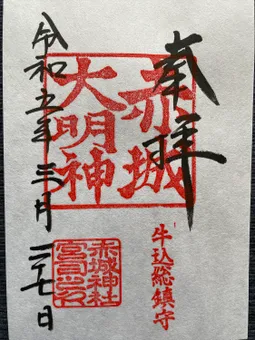 奉拝
赤城
大明神
牛込総鎮守
令和五年三月二十七日
赤城神社
宮司之印